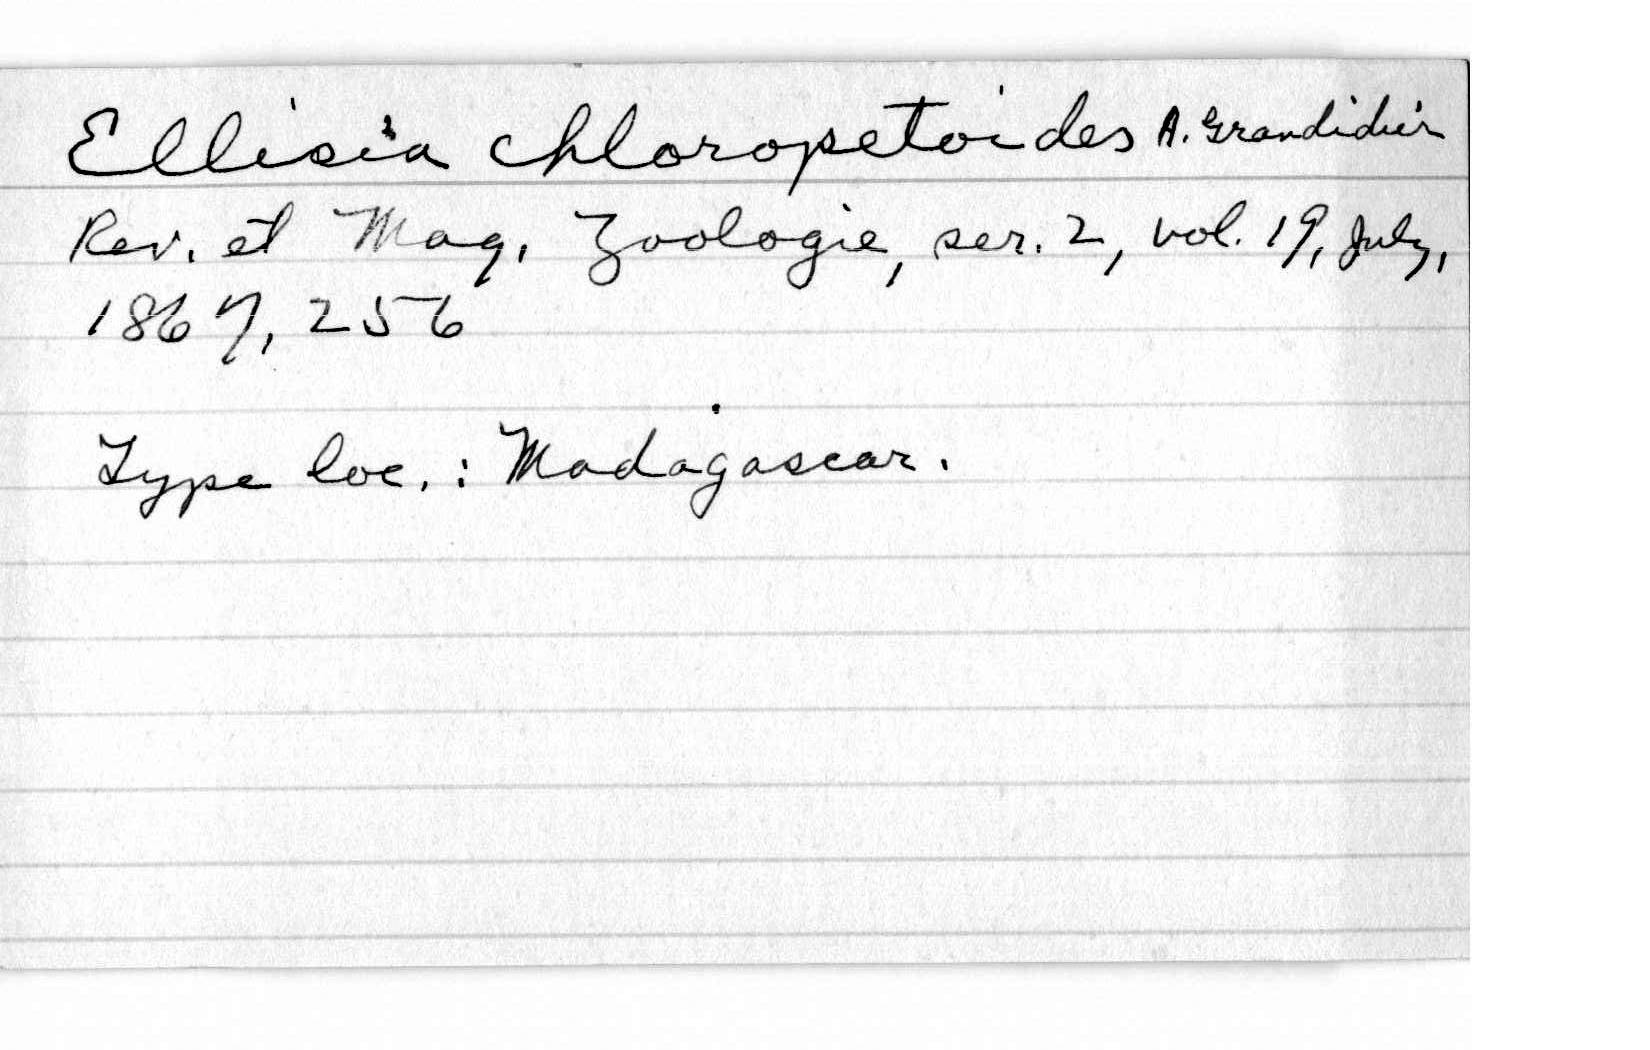 Ellisia chloropetoides A. Grandidier
Rev. et Mag. Zoologie, ser. 2, vol. 19, July,
1867, 256
Type loc. : Madagascar.